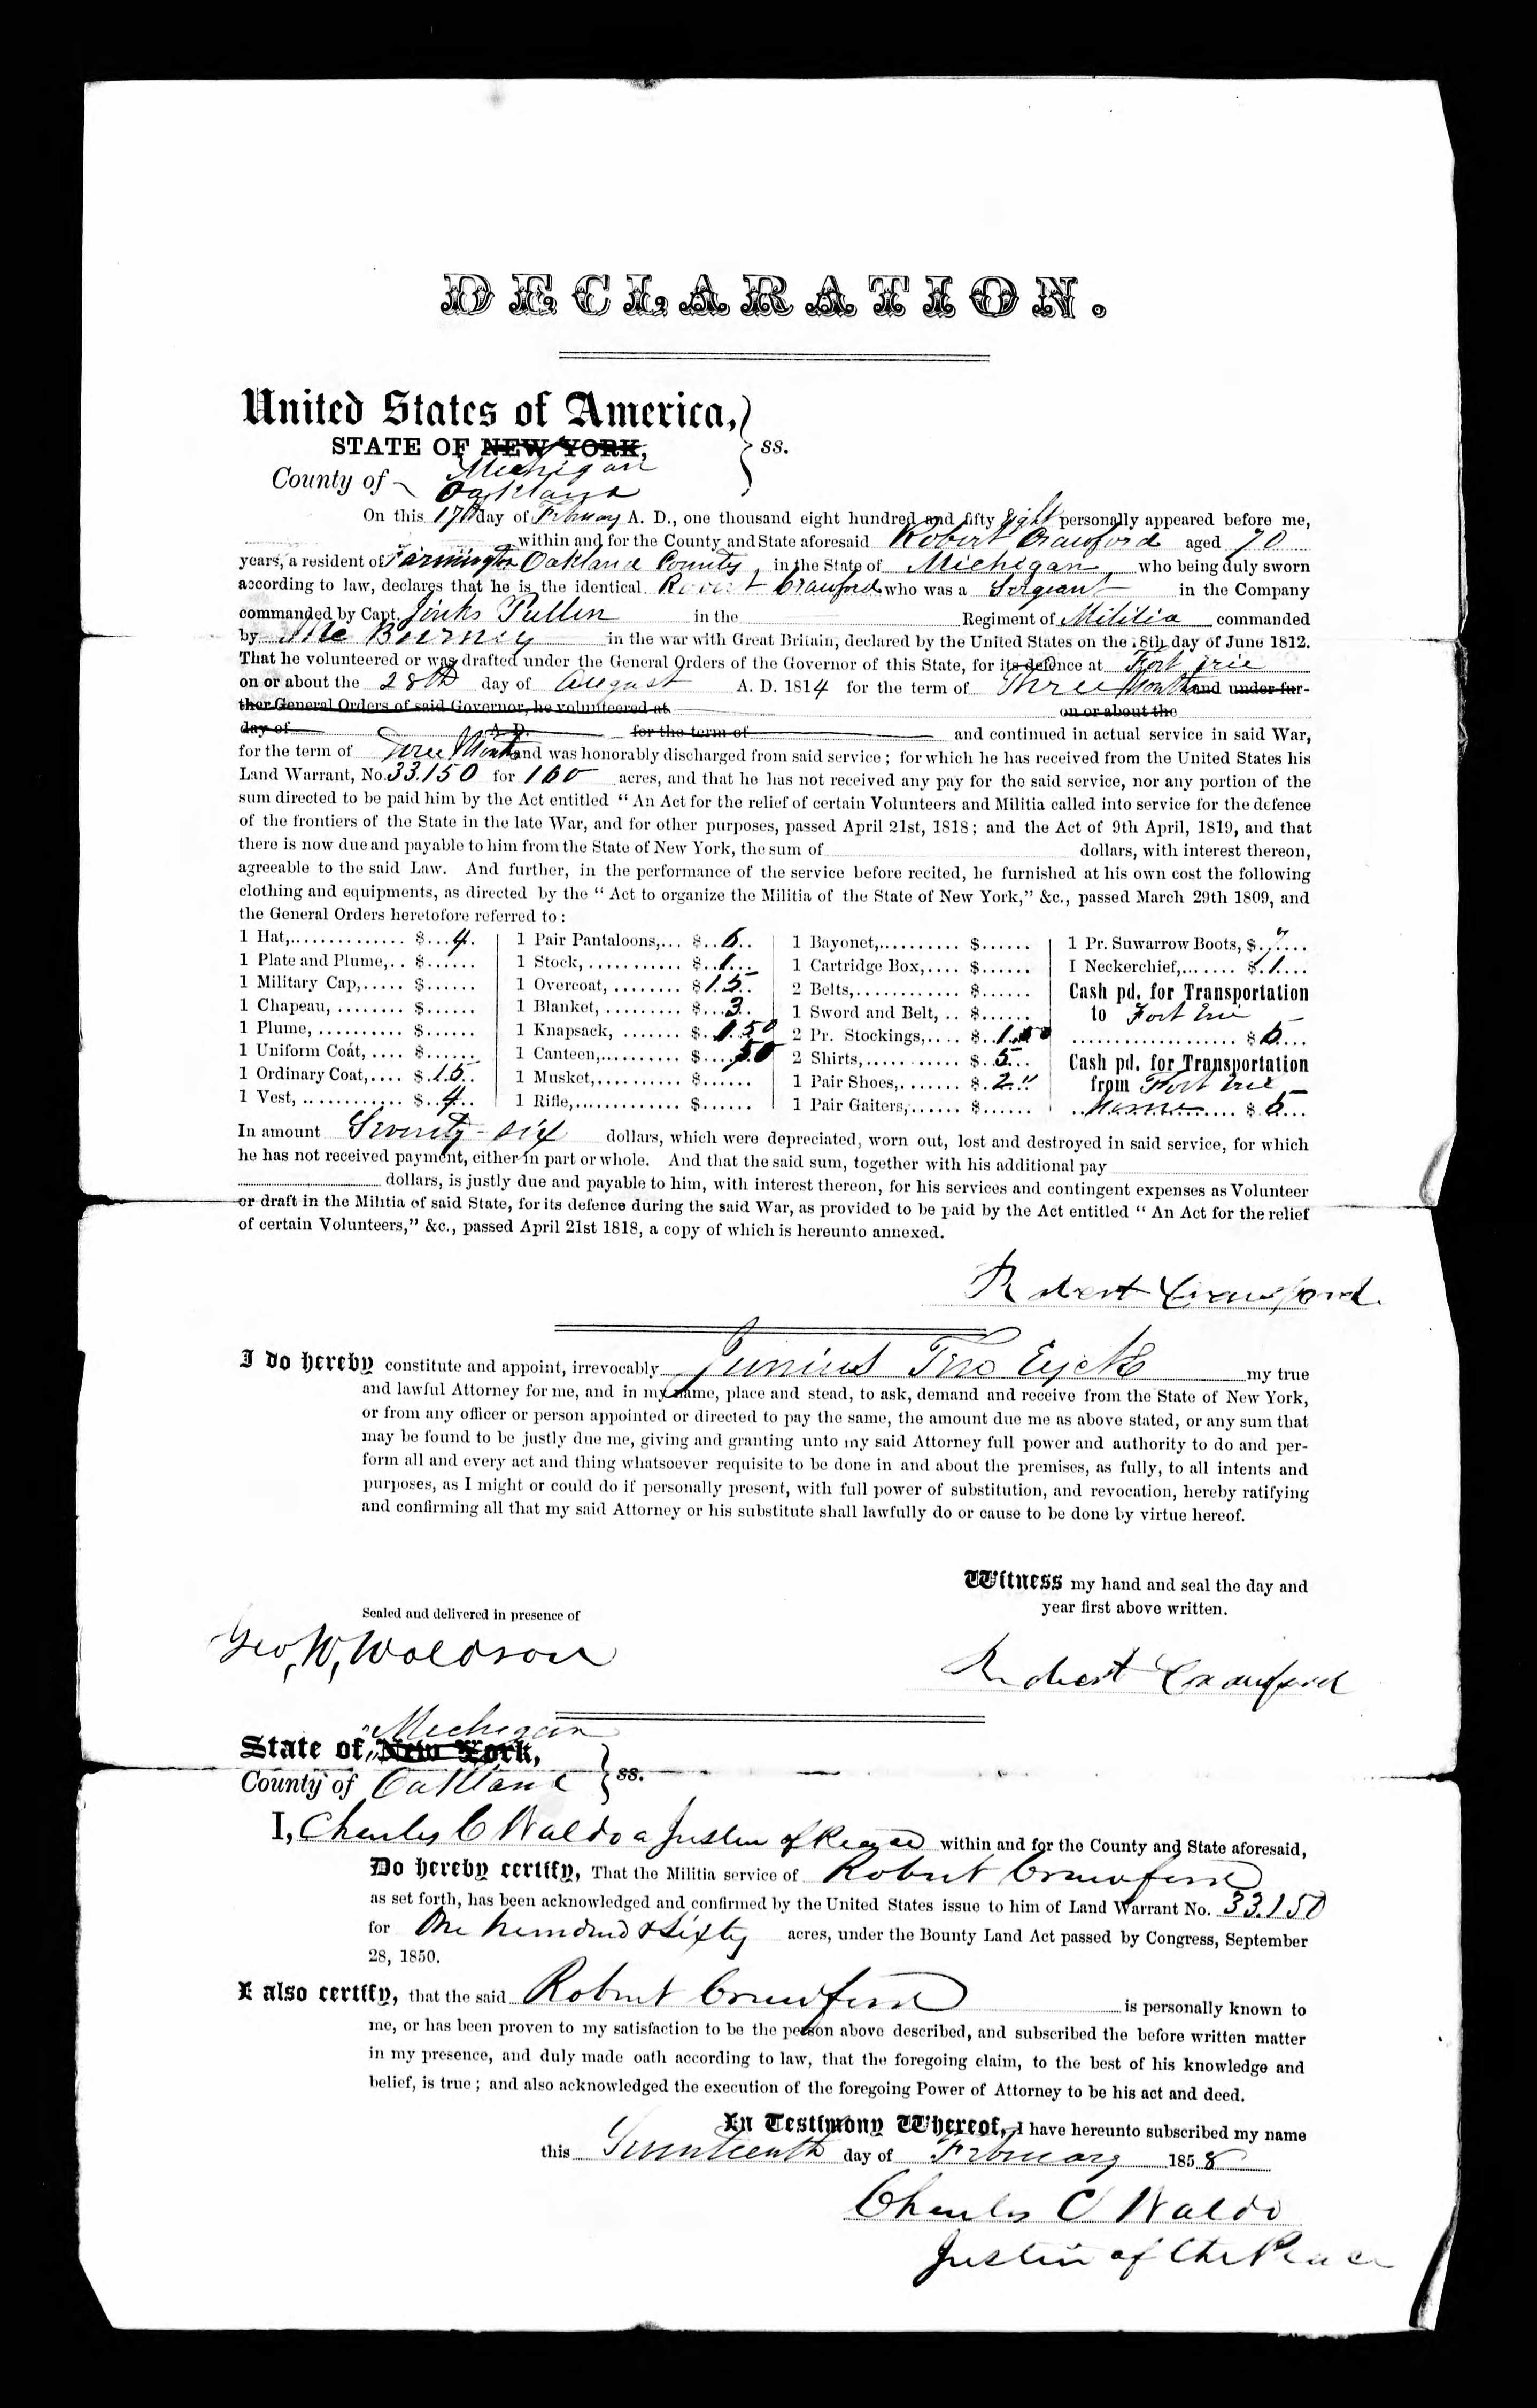 DECLARATION.
United States of America,
STATE OF NEW YORK, } ss.
Michigan
County of Oakland
On this 17th day of February A. D., one thousand eight hundred and fifty Eight personally appeared before me,
within and for the County and State aforesaid Robert Crawford aged 70
years, a resident of Farmington Oakland County, in the State of Michigan, who being duly sworn
according to law, declares that he is the identical Robert Crawford who was a Sergeant in the Company
commanded by Capt. Jinks Pullin in the Regiment of Militia commanded
by Mc Burney in the war with Great Britain, declared by the United States on the 18th day of June 1812.
That he volunteered or was drafted under the General Orders of the Governor of this State, for its defence at Fort Irie
on or about the 28th day of August A. D. 1814 for the term of Three Months and under fur-
ther General Orders of said Governor, he volunteered at on or about the
day of A. D. for the term of and continued in actual service in said War,
for the term of Three Months and was honorably discharged from said service; for which he has received from the United States his
Land Warrant, No. 33.150 for 160 acres, and that he has not received any pay for the said service, nor any portion of the
sum directed to be paid him by the Act entitled " An Act for the relief of certain Volunteers and Militia called into service for the defence
of the frontiers of the State in the late War, and for other purposes, passed April 21st, 1818; and the Act of 9th April, 1819, and that
there is now due and payable to him from the State of New York, the sum of dollars, with interest thereon,
agreeable to the said Law. And further, in the performance of the service before recited, he furnished at his own cost the following
clothing and equipments, as directed by the " Act to organize the Militia of the State of New York," &c., passed March 29th 1809, and
the General Orders heretofore referred to:
1 Hat, $ 4.
1 Plate and Plume, $
1 Military Cap, $
1 Chapeau, $
1 Plume, $
1 Uniform Coat, $
1 Ordinary Coat, $ 15
1 Vest, $ 4
1 Pair Pantaloons, $ 6
1 Stock, $ 1
1 Overcoat, $ 15
1 Blanket, $ 3
1 Knapsack, $ 1.50
1 Canteen, $ .50
1 Musket, $
1 Rifle, $
1 Bayonet, $
1 Cartridge Box, $
2 Belts, $
1 Sword and Belt, $
2 Pr. Stockings, $ 1.50
2 Shirts, $ 5
1 Pair Shoes, $ 2"
1 Pair Gaiters, $
1 Pr. Suwarrow Boots, $ 7
1 Neckerchief, $ 1
Cash pd. for Transportation
to Fort Erie
$ 5
Cash pd. for Transportation
from Fort Erie
Home $ 5
In amount Seventy-six dollars, which were depreciated, worn out, lost and destroyed in said service, for which
he has not received payment, either in part or whole. And that the said sum, together with his additional pay
dollars, is justly due and payable to him, with interest thereon, for his services and contingent expenses as Volunteer
or draft in the Militia of said State, for its defence during the said War, as provided to be paid by the Act entitled " An Act for the relief
of certain Volunteers," &c., passed April 21st 1818, a copy of which is hereunto annexed.
Robert Crawford.
I do hereby constitute and appoint, irrevocably Junius Ten Eyck my true
and lawful Attorney for me, and in my name, place and stead, to ask, demand and receive from the State of New York,
or from any officer or person appointed or directed to pay the same, the amount due me as above stated, or any sum that
may be found to be justly due me, giving and granting unto my said Attorney full power and authority to do and per-
form all and every act and thing whatsoever requisite to be done in and about the premises, as fully, to all intents and
purposes, as I might or could do if personally present, with full power of substitution, and revocation, hereby ratifying
and confirming all that my said Attorney or his substitute shall lawfully do or cause to be done by virtue hereof.
Witness my hand and seal the day and
year first above written.
Sealed and delivered in presence of
Geo, W, Woldson
Robert Crawford
Michigan
State of New York,
County of Oakland } ss.
I, Charles C Waldo a Justice of Peace within and for the County and State aforesaid,
Do hereby certify, That the Militia service of Robert Crawford
as set forth, has been acknowledged and confirmed by the United States issue to him of Land Warrant No. 33.150
for One hundred & Sixty acres, under the Bounty Land Act passed by Congress, September
28, 1850.
I also certify, that the said Robert Crawford is personally known to
me, or has been proven to my satisfaction to be the person above described, and subscribed the before written matter
in my presence, and duly made oath according to law, that the foregoing claim, to the best of his knowledge and
belief, is true; and also acknowledged the execution of the foregoing Power of Attorney to be his act and deed.
In Testimony Whereof, I have hereunto subscribed my name
this Seventeenth day of February 1858
Charles C Waldo
Justice of the Peace